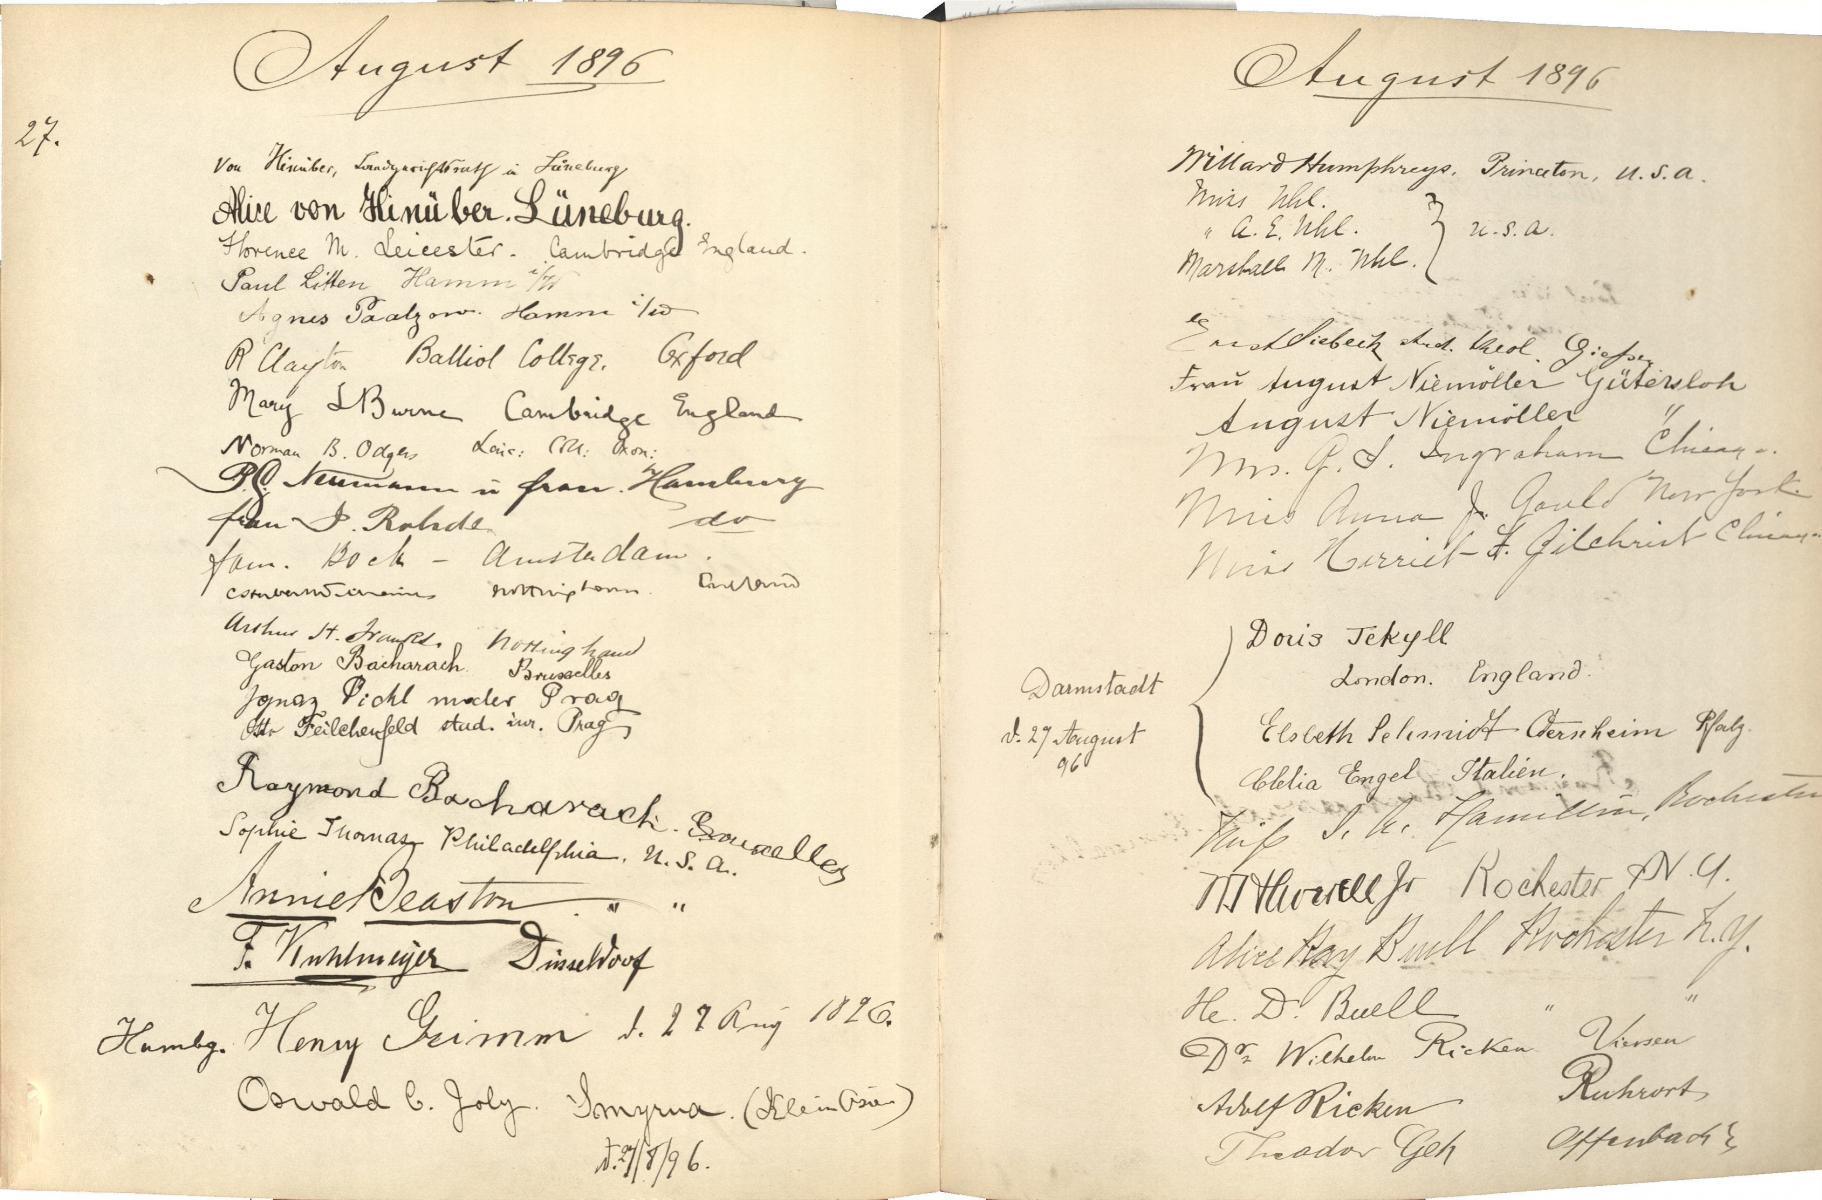 August 1896
27.
von Hinüber, Landgerichtsrath in Lüneburg
Alice von Hinüber. Lüneburg.
Florence M. Leicester. Cambridge England.
Paul Litten Hamm i/W
Agnes Paalzow. Hamm i/W
R Clayton Balliol College. Oxford
Mary L Burne Cambridge England
Norman B. Odgers Oxon:
Neumann u frau. Hamburg
frau do
fam. Bock - Amsterdam.
Nottingham. England
Arthur H. Nottingham
Gaston Bacharach. Bruxelles
Ignaz Pichl Prag
Otto Feilchenfeld stud. iur. Prag
Raymond Bacharach. Bruxelles
Sophie Thomas, Philadelphia. U.S.A.
Annie Beaston " "
F. Kuhlmeyer Düsseldorf
Hambg. Henry Grimm d. 27 Aug 1896.
Oswald C. Joly. Smyrna. (Klein Asien)
d. 27/8/96.
August 1896
Willard Humphreys. Princeton, U.S.A.
Miss Uhl.
" A. E. Uhl. } U.S.A.
Marshall M. Uhl.
Ernst Siebeck stud. theol. Giessen
Frau August Niemöller Gütersloh
August Niemöller "
Mrs. G. S. Ingraham Chicago.
Miss Anna J. Gould New York.
Miss Harriet F. Gilchrist Chicago.
Doris Jekyll
London. England.
Darmstadt
d. 27 August
96
Elsbeth Schmidt Odernheim Pfalz.
Clelia Engel Italien.
Miss Hamilton, Rochester
Howell Jr Rochester N.Y.
Alice Ray Buell Rochester N.Y.
He. D. Buell " "
Dr. Wilhelm Ricken Viersen
Adolf Ricken Ruhrort
Theodor Geh Offenbach